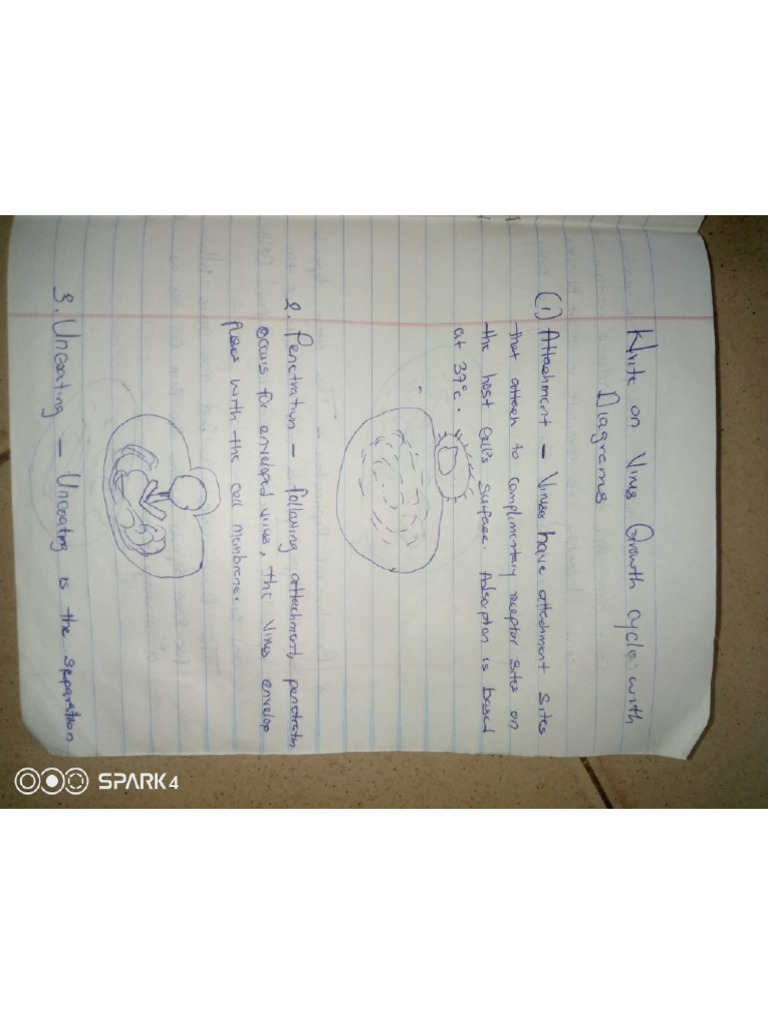 Write on Virus Growth cycle with
Diagrams
(1) Attachment - Viruses have attachment sites
that attach to complimentary receptor sites on
the host cell's surface. Adsorption is based
at 37°c.
2. Penetration - following attachment, penetratn
occurs for enveloped virus, the virus envelop
fuses with the cell membrane.
3. Uncoating - Uncoating is the separation
SPARK 4